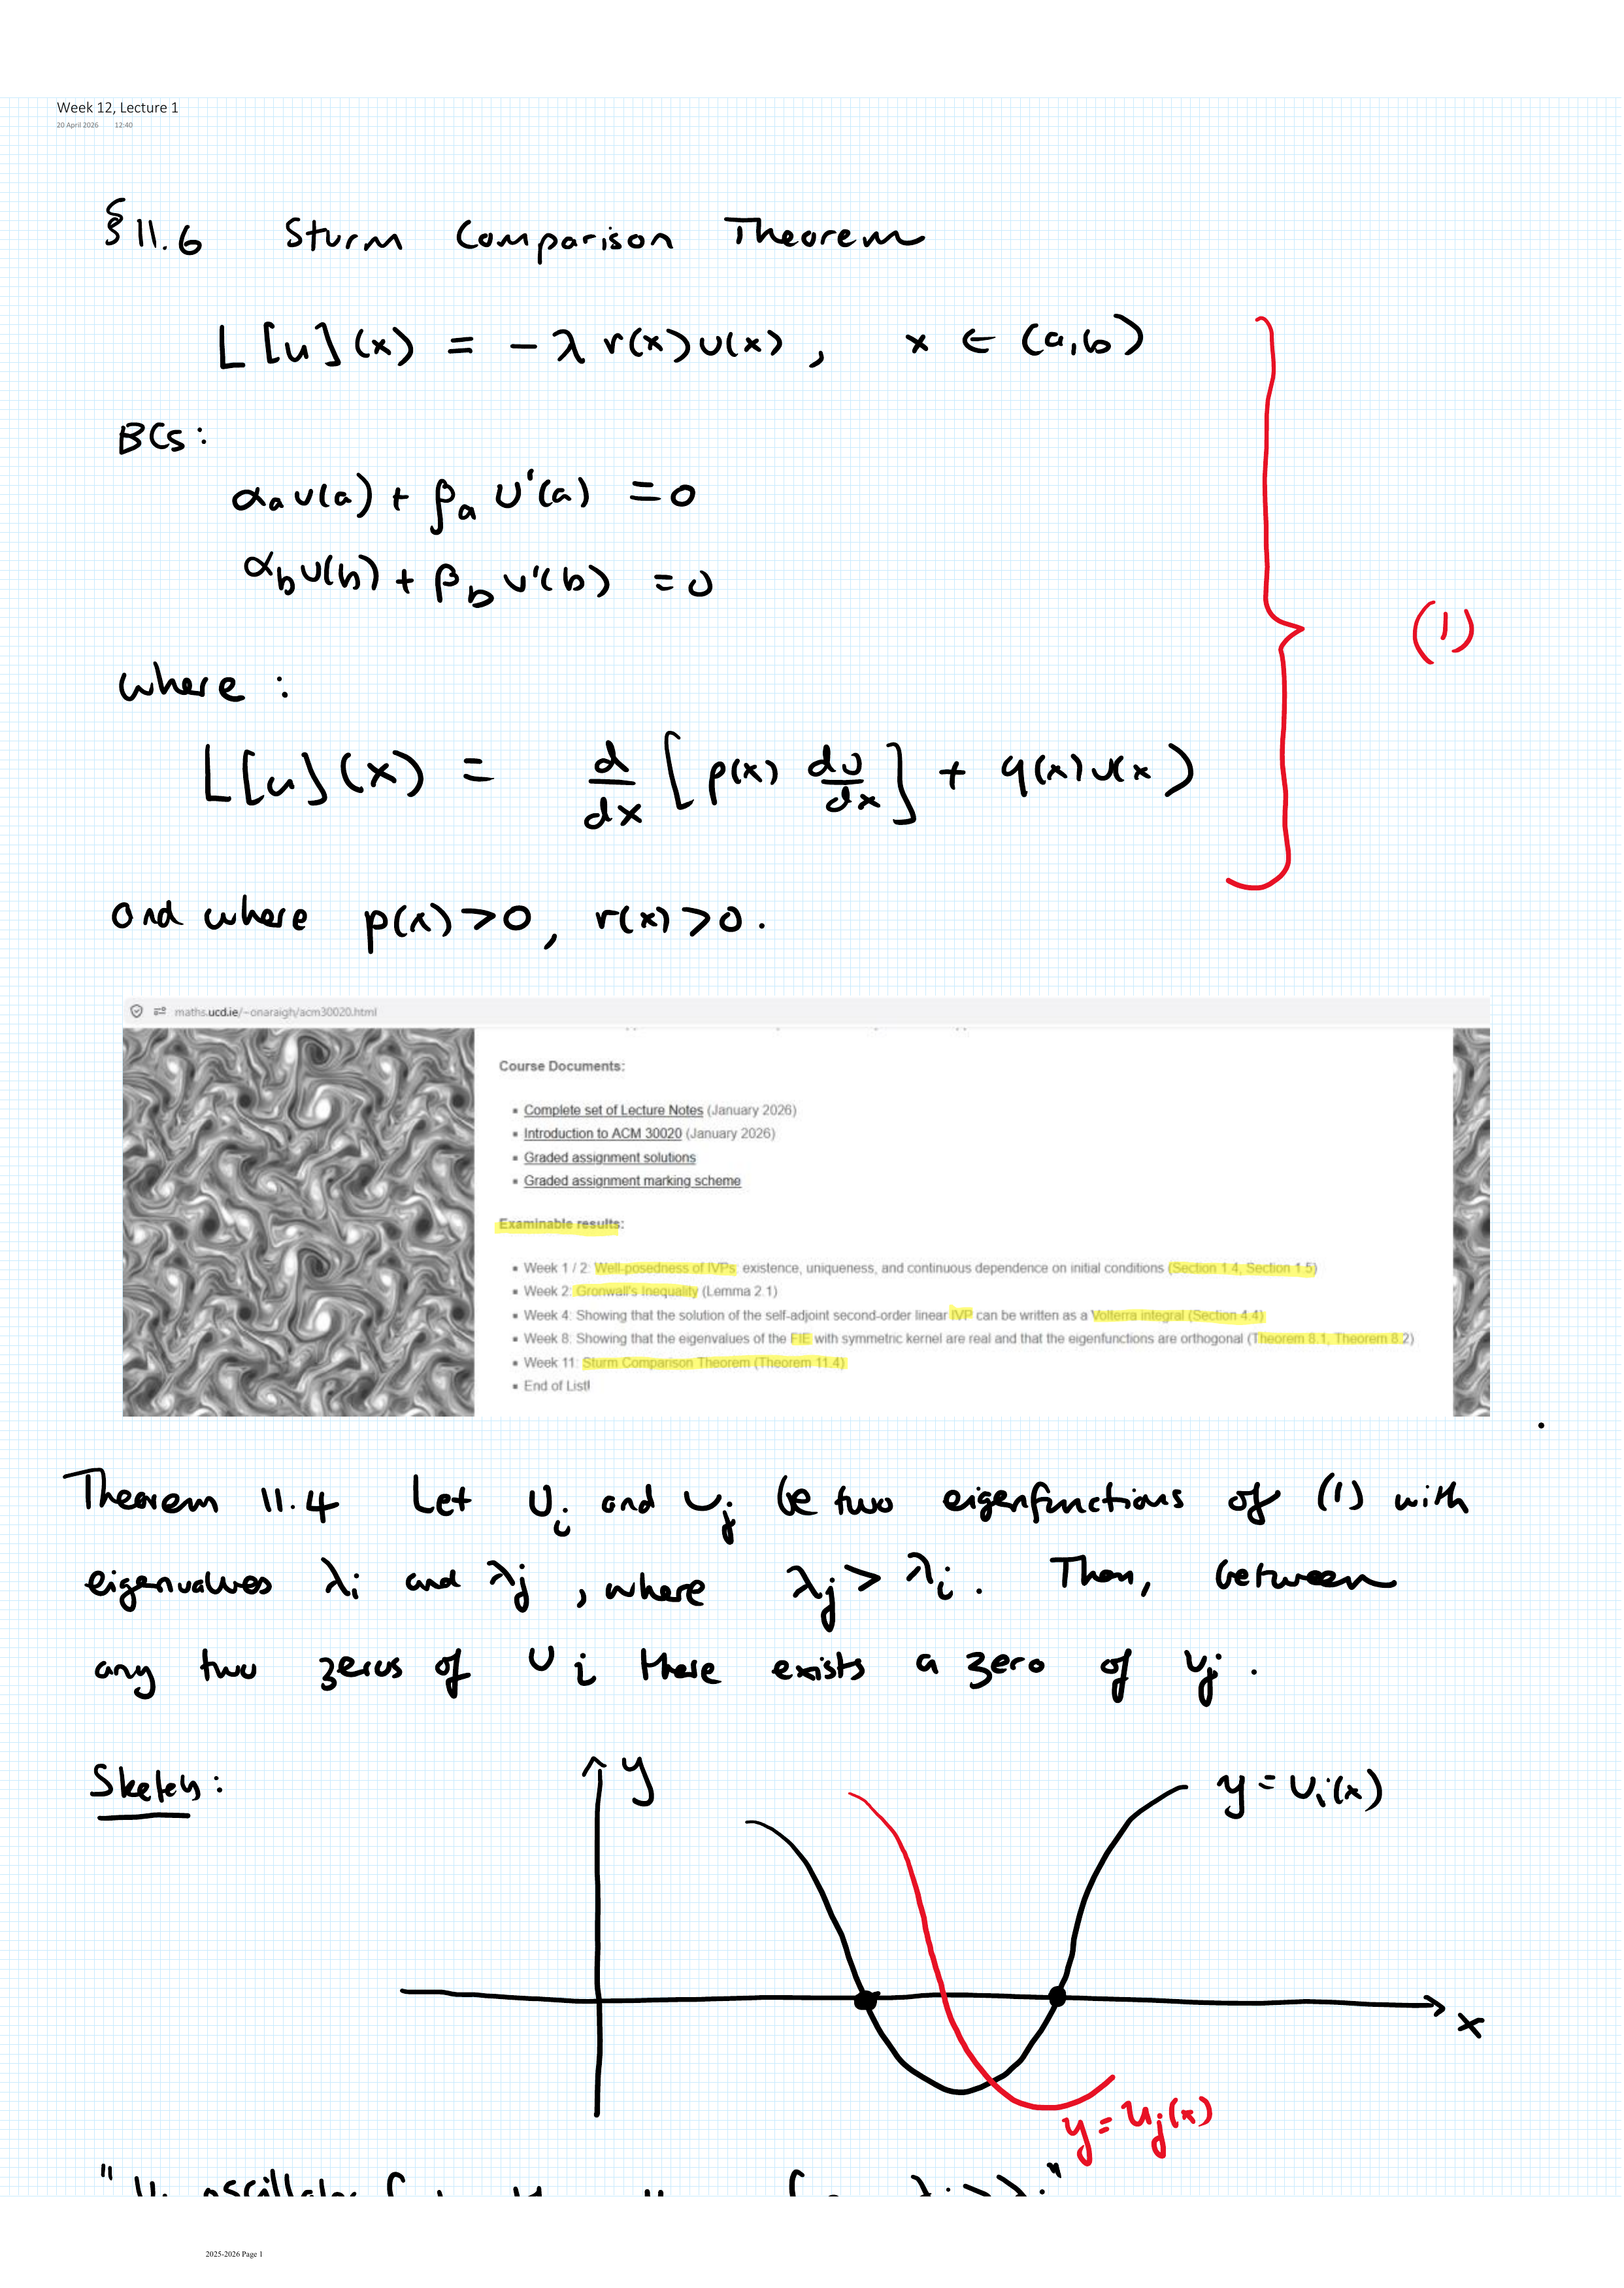 Week 12, Lecture 1
20 April 2026 12:40
§ 11.6 Sturm Comparison Theorem
L[u](x) = -λ r(x)u(x), x ∈ (a,b)
BCs:
αₐu(a) + βₐ u'(a) = 0
α_b u(b) + β_b u'(b) = 0
(1)
where :
L[u](x) = d/dx [p(x) du/dx] + q(x)u(x)
and where p(x)>0, r(x)>0.
maths.ucd.ie/~onaraigh/acm30020.html
Course Documents:
Complete set of Lecture Notes (January 2026)
Introduction to ACM 30020 (January 2026)
Graded assignment solutions
Graded assignment marking scheme
Examinable results:
Week 1 / 2: Well-posedness of IVPs: existence, uniqueness, and continuous dependence on initial conditions (Section 1.4, Section 1.5)
Week 2: Gronwall's Inequality (Lemma 2.1)
Week 4: Showing that the solution of the self-adjoint second-order linear IVP can be written as a Volterra integral (Section 4.4)
Week 8: Showing that the eigenvalues of the FIE with symmetric kernel are real and that the eigenfunctions are orthogonal (Theorem 8.1, Theorem 8.2)
Week 11: Sturm Comparison Theorem (Theorem 11.4)
End of List!
Theorem 11.4 Let u_i and u_j be two eigenfunctions of (1) with
eigenvalues λ_i and λ_j, where λ_j > λ_i. Then, between
any two zeros of u_i there exists a zero of u_j.
Sketch:
y
y = u_i(x)
x
y = u_j(x)
2025-2026 Page 1